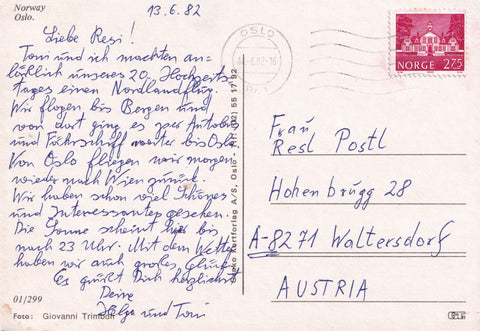 Norway
Oslo.
13.6.82
Liebe Resi!
Toni und ich machten an-
läßlich unseres 20. Hochzeits-
tages einen Nordlandflug.
Wir flogen bis Bergen und
von dort ging es per Autobus
und Fährschiff weiter bis Oslo.
Von Oslo fliegen wir morgen
wieder nach Wien zurück.
Wir haben schon viel Schönes
und Interessantes gesehen.
Die Sonne scheint hier bis
nach 23 Uhr. Mit dem Wetter
haben wir auch großes Glück.
Es grüßt Dich herzlichst
Deine
Helga und Toni
01/299
Foto: Giovanni Trimboli
Kartforlag A/S, Oslo - Tlf. (02) 55 17 92
OSLO
6.82-16
NORGE 275
Frau
Resl Postl
Hohenbrugg 28
A-8271 Waltersdorf
AUSTRIA